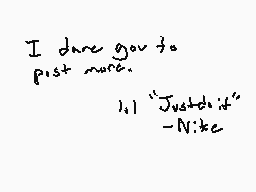 I dare you to
post more.
1,1 "Just do it"
-Nike